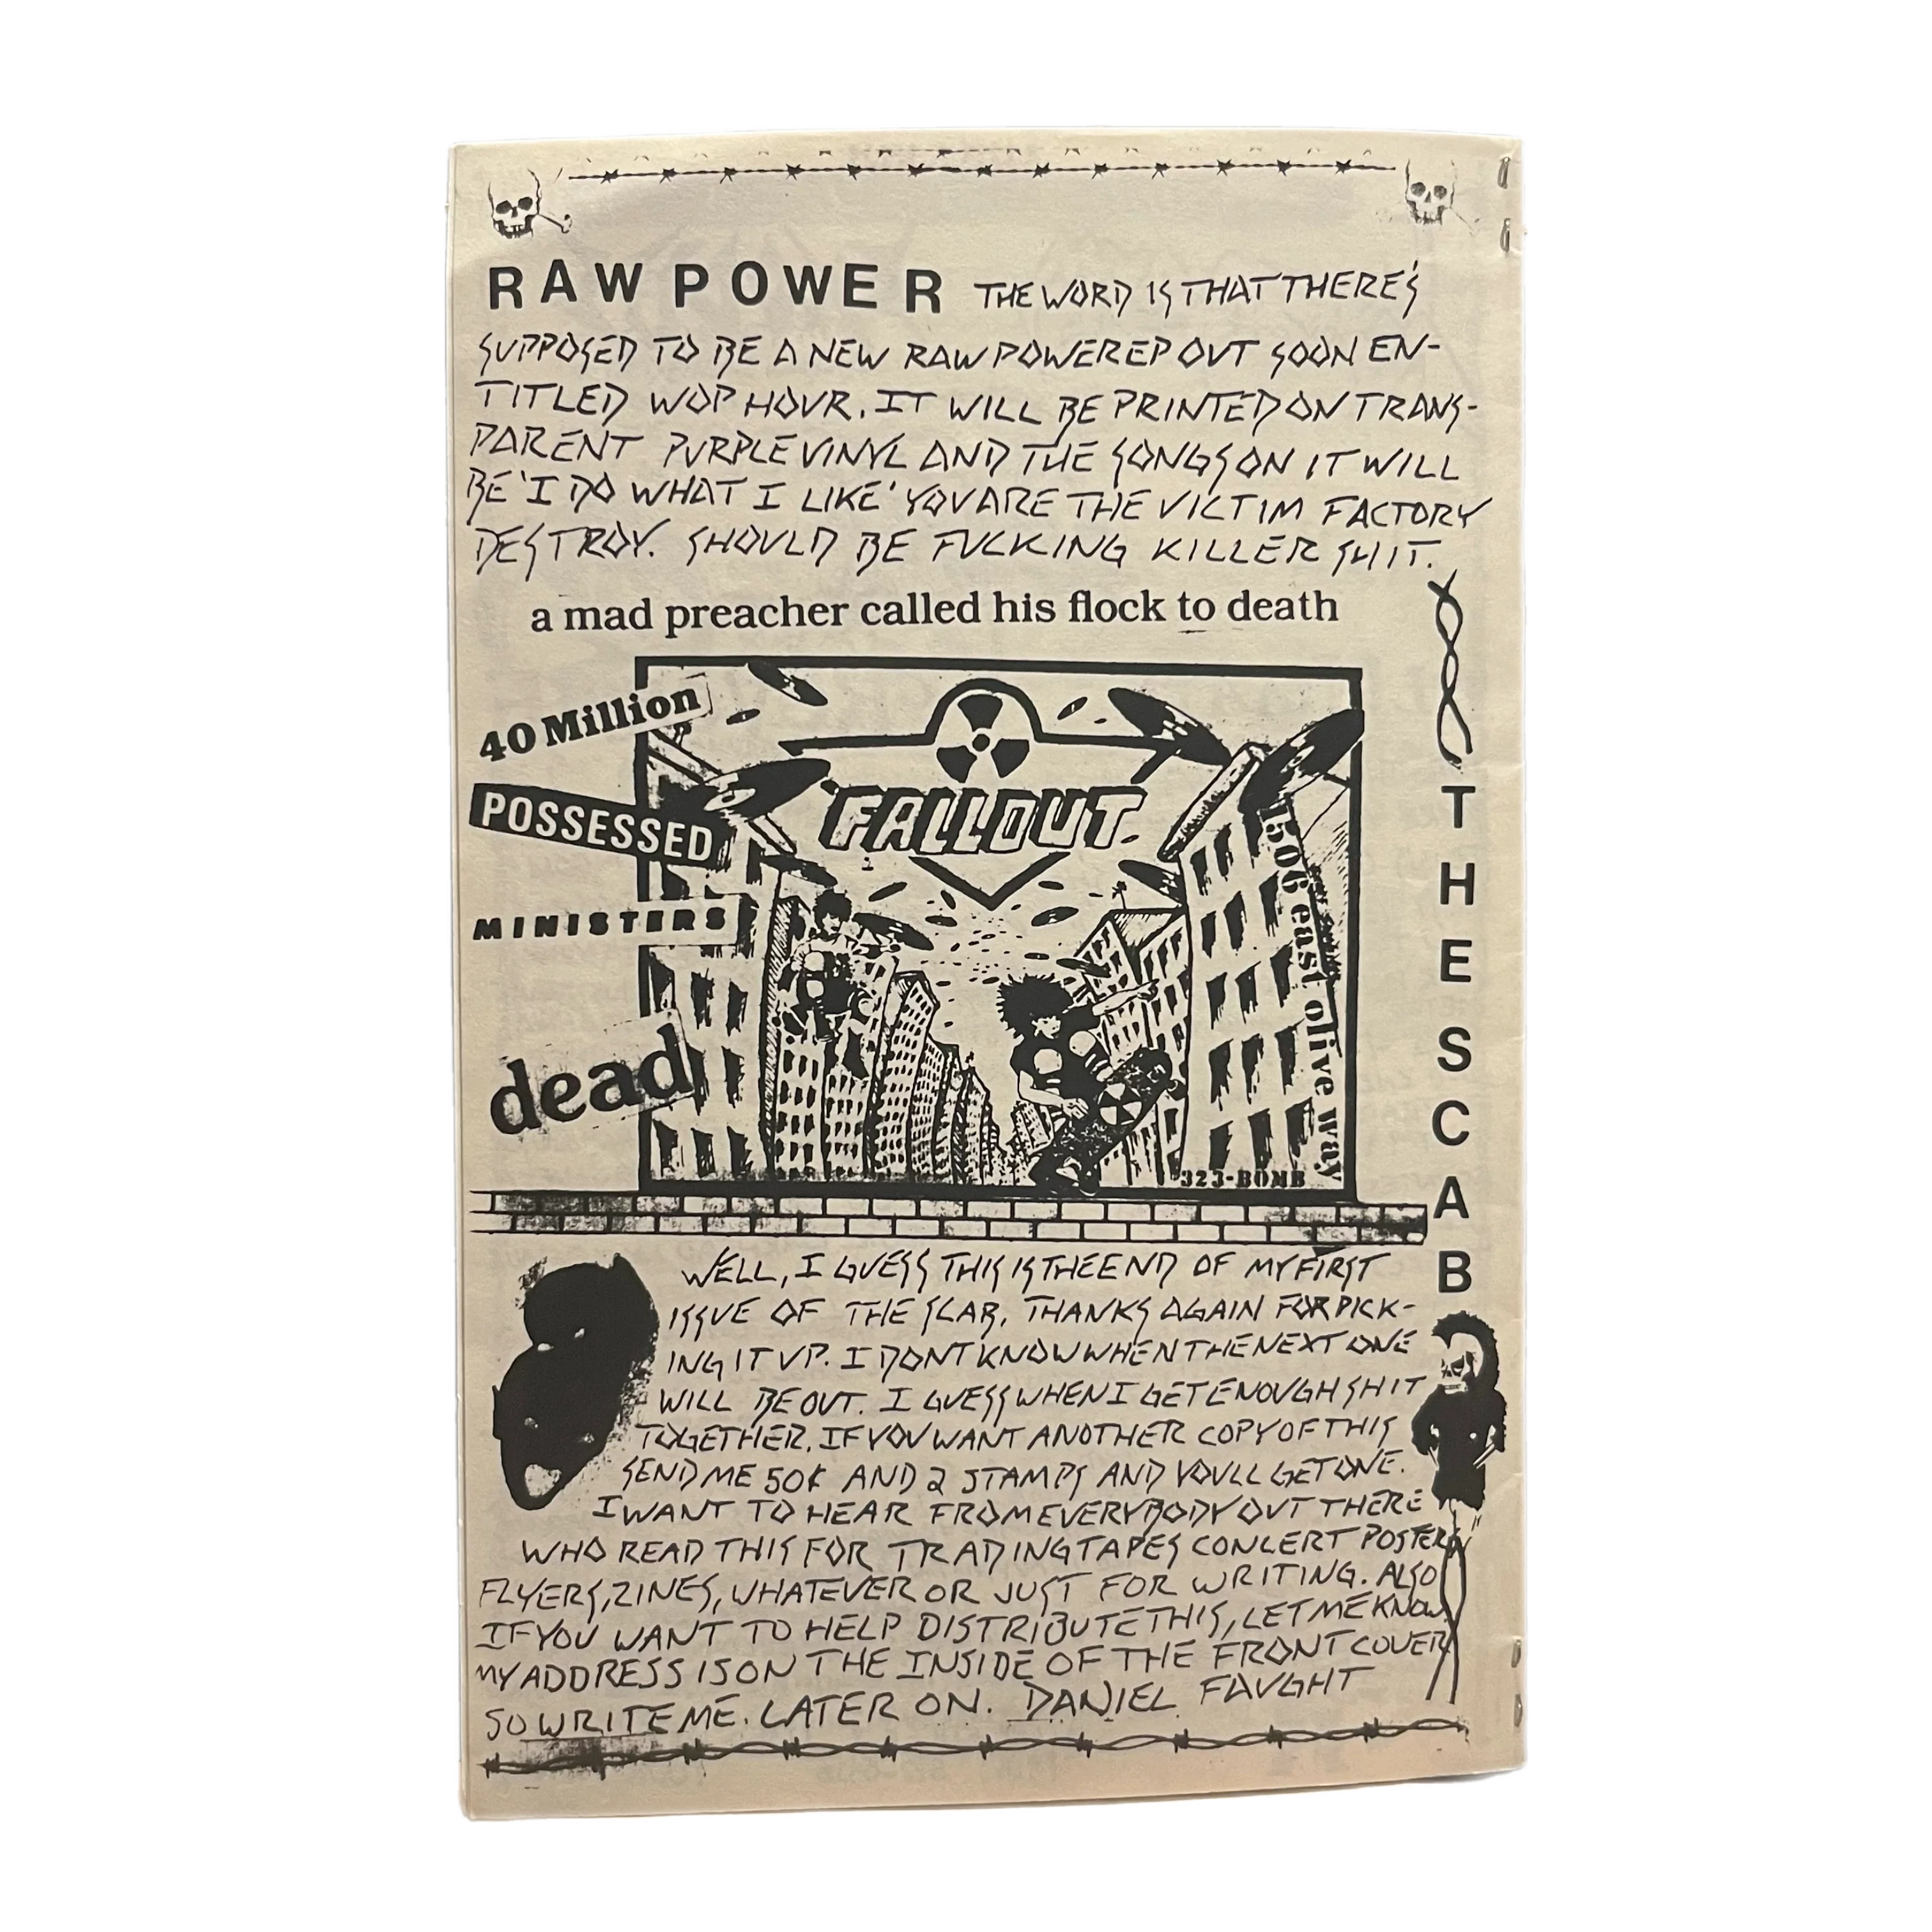 RAW POWER THE WORD IS THAT THERE'S
SUPPOSED TO BE A NEW RAW POWER EP OUT SOON EN-
TITLED WOP HOUR. IT WILL BE PRINTED ON TRANS-
PARENT PURPLE VINYL AND THE SONGS ON IT WILL
BE 'I DO WHAT I LIKE' YOU ARE THE VICTIM FACTORY
DESTROY. SHOULD BE FUCKING KILLER SHIT.
a mad preacher called his flock to death
40 Million
POSSESSED
MINISTERS
dead
FALLOUT
1506 east olive way
323-BOMB
THE SCAB
WELL, I GUESS THIS IS THE END OF MY FIRST
ISSUE OF THE SCAB, THANKS AGAIN FOR PICK-
ING IT UP. I DONT KNOW WHEN THE NEXT ONE
WILL BE OUT. I GUESS WHEN I GET ENOUGH SHIT
TOGETHER. IF YOU WANT ANOTHER COPY OF THIS
SEND ME 50¢ AND 2 STAMPS AND YOULL GET ONE.
I WANT TO HEAR FROM EVERYBODY OUT THERE
WHO READ THIS FOR TRADING TAPES CONCERT POSTERS
FLYERS, ZINES, WHATEVER OR JUST FOR WRITING. ALSO
IF YOU WANT TO HELP DISTRIBUTE THIS, LET ME KNOW.
MY ADDRESS IS ON THE INSIDE OF THE FRONT COVER
SO WRITE ME. LATER ON. DANIEL FAUGHT